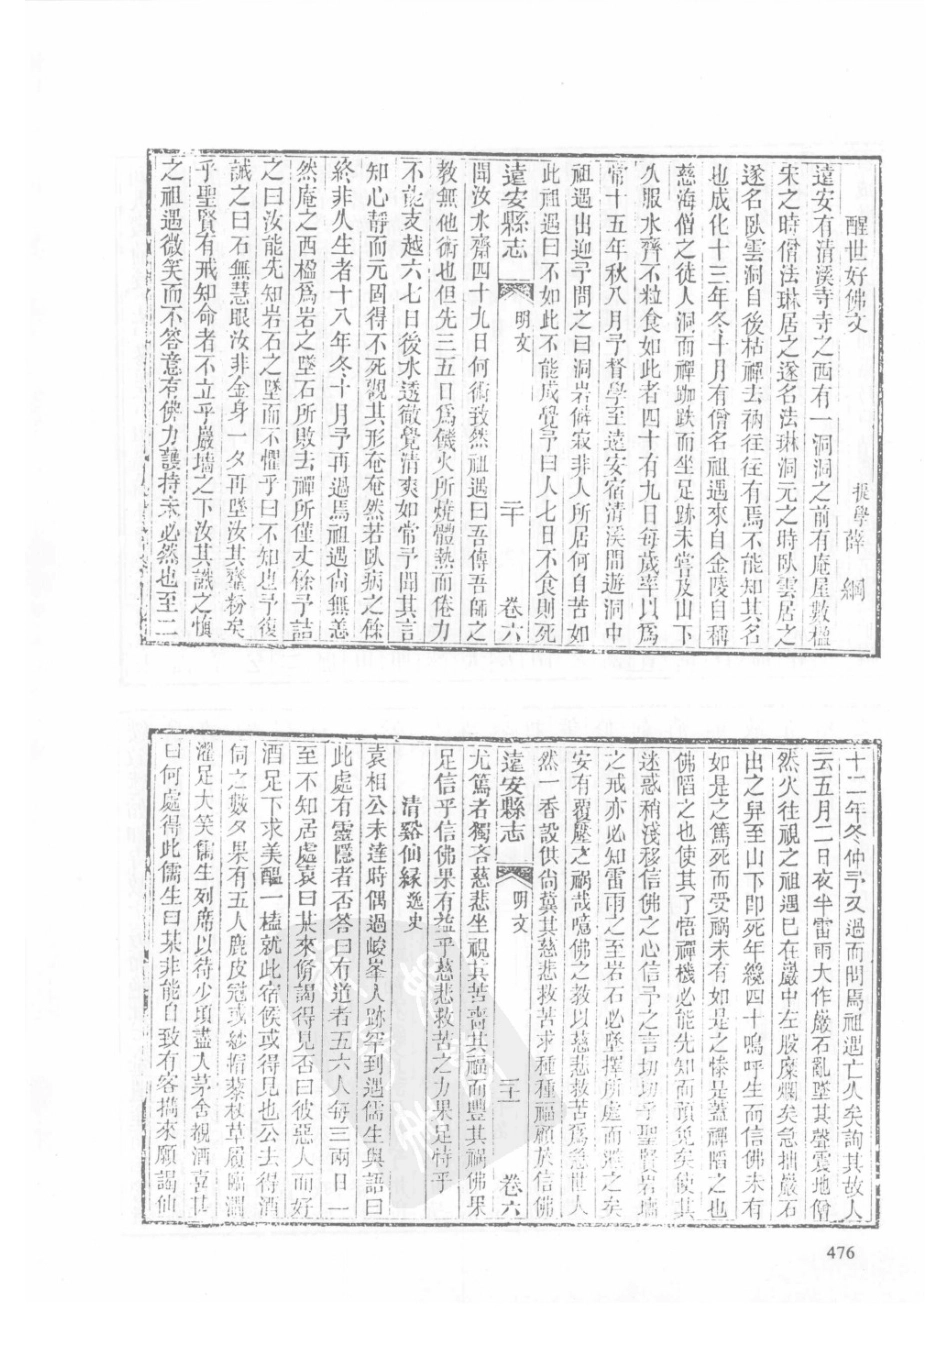 醒世好佛文
提學薛綱
遠安有清溪寺寺之西有一洞洞之前有庵屋數楹
宋之時僧法琳居之遂名法琳洞元之時臥雲居之
遂名臥雲洞自後枯禪去衲往往有焉不能知其名
也成化十三年冬十月有僧名祖遇來自金陵自稱
慈海僧之徒入洞而禪跏趺而坐足跡未嘗及山下
久服水齊不粒食如此者四十有九日每歲率以爲
常十五年秋八月予督學至遠安宿清溪閒遊洞中
祖遇出迎予問之曰洞岩僻寂非人所居何自苦如
此祖遇曰不如此不能成覺予曰人七日不食則死
遠安縣志 明文 二十 卷六
聞汝水齋四十九日何術致然祖遇曰吾傳吾師之
教無他術也但先三五日爲饑火所燒體熱而倦力
不能支越六七日後水透徹覺清爽如常予聞其言
知心靜而元固得不死觀其形奄奄然若臥病之餘
終非久生者十八年冬十月予再過焉祖遇尚無恙
然庵之西楹爲岩之墜石所敗去禪所僅丈餘予詰
之曰汝能先知岩石之墜而不懼乎曰不知也予復
誡之曰石無慧眼汝非金身一夕再墜汝其虀粉矣
乎聖賢有戒知命者不立乎巖墻之下汝其識之愼
之祖遇微笑而不答意有佛力護持未必然也至二
十二年冬仲予又過而問焉祖遇亡久矣詢其故人
云五月二日夜半雷雨大作巖石亂墜其聲震地僧
然火往視之祖遇已在巖中左股糜爛矣急拙巖石
出之舁至山下即死年纔四十嗚呼生而信佛未有
如是之篤死而受禍未有如是之慘是蓋禪陷之也
佛陷之也使其了悟禪機必能先知而預免矣使其
迷惑稍淺移信佛之心信予之言切切乎聖賢岩墻
之戒亦必知雷雨之至岩石必墜擇所處而避之矣
安有覆壓之禍哉噫佛之教以慈悲救苦爲急世人
然一香設供尚冀其慈悲救苦求種種福願於信佛
遠安縣志 明文 二十一 卷六
尤篤者獨吝慈悲坐視其苦嗇其福而豐其禍佛果
足信乎信佛果有益乎慈悲救苦之力果足恃乎
清谿仙緣逸史
袁相公未達時偶過峻峯人跡罕到遇儒生與語曰
此處有靈隱者否答曰有道者五六人每三兩日一
至不知居處袁曰某來脩謁得見否曰彼惡人而好
酒足下求美醞一榼就此宿候或得見也公去得酒
伺之數夕果有五人鹿皮冠或紗帽藜杖草履臨澗
濯足大笑儒生列席以待少頃盡入茅舍視酒喜甚
曰何處得此儒生曰某非能自致有客攜來願謁仙
476